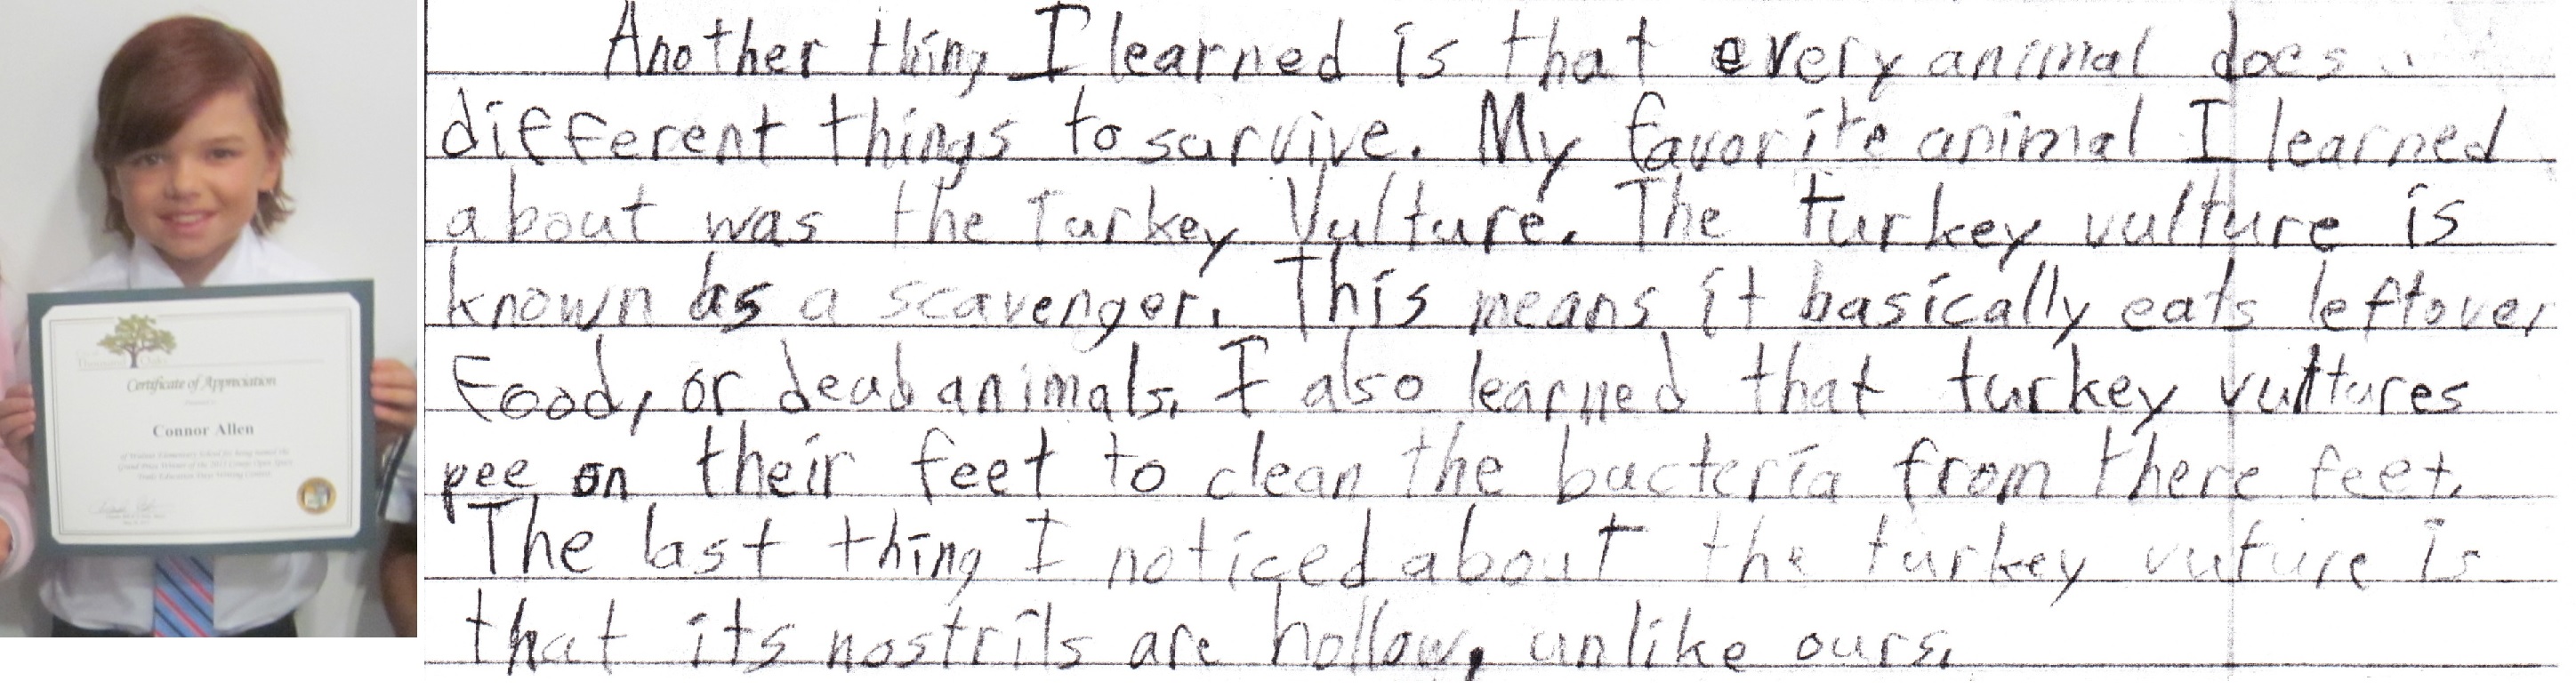 Certificate of Appreciation
Connor Allen
Another thing I learned is that every animal does
different things to survive. My favorite animal I learned
about was the Turkey Vulture. The turkey vulture is
known as a scavenger. This means it basically eats leftover
food, or dead animals. I also learned that turkey vultures
pee on their feet to clean the bacteria from there feet.
The last thing I noticed about the turkey vuture is
that its nostrils are hollow, unlike ours.